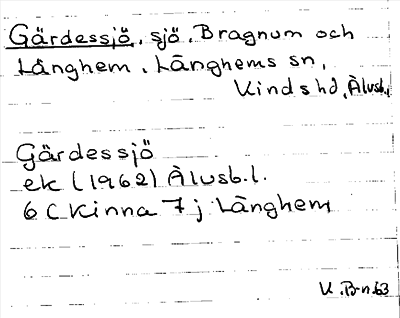 Gärdessjö, sjö, Bragnum och
Långhem, Långhems sn,
Kinds hd, Älvsb.l
Gärdessjö
ek (1962) Älvsb.l.
6 C Kinna 7 j Långhem
K. B-n 63